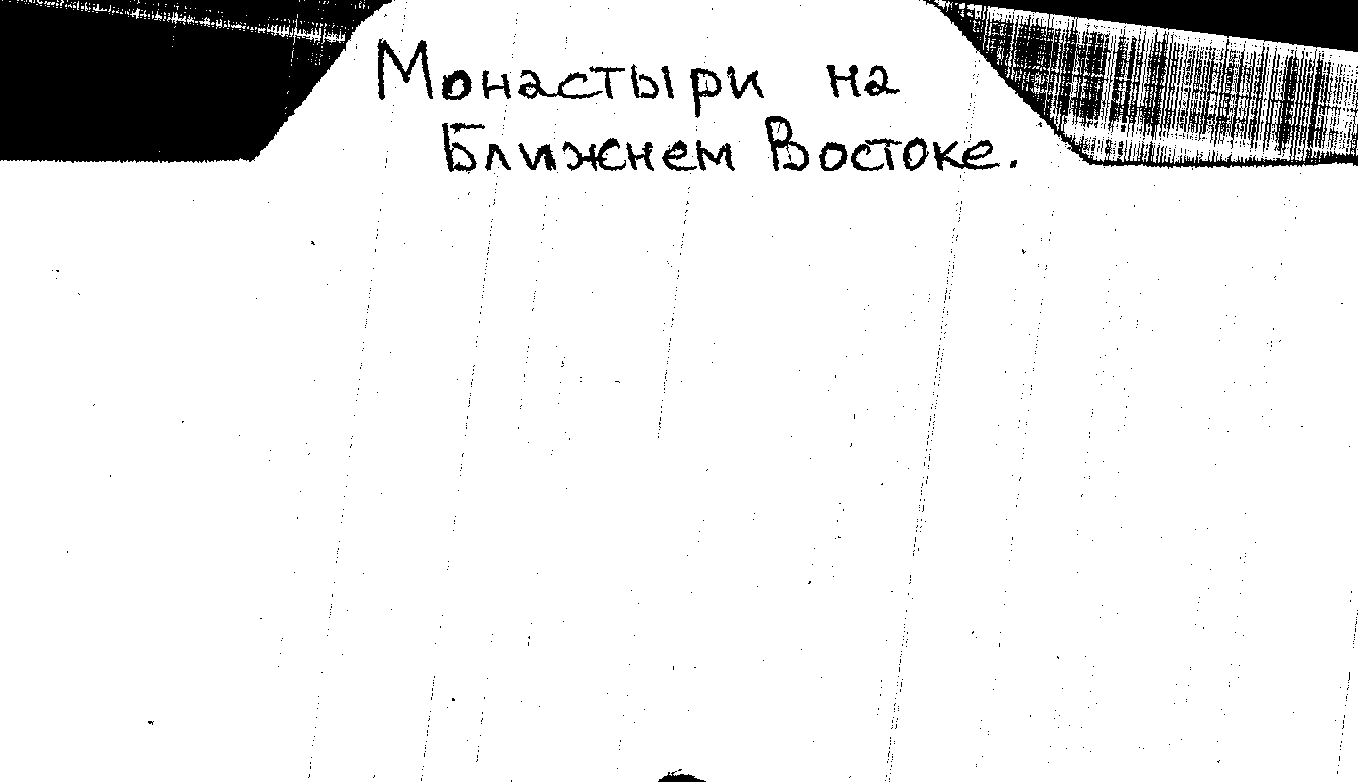 Монастыри на
Ближнем Востоке.